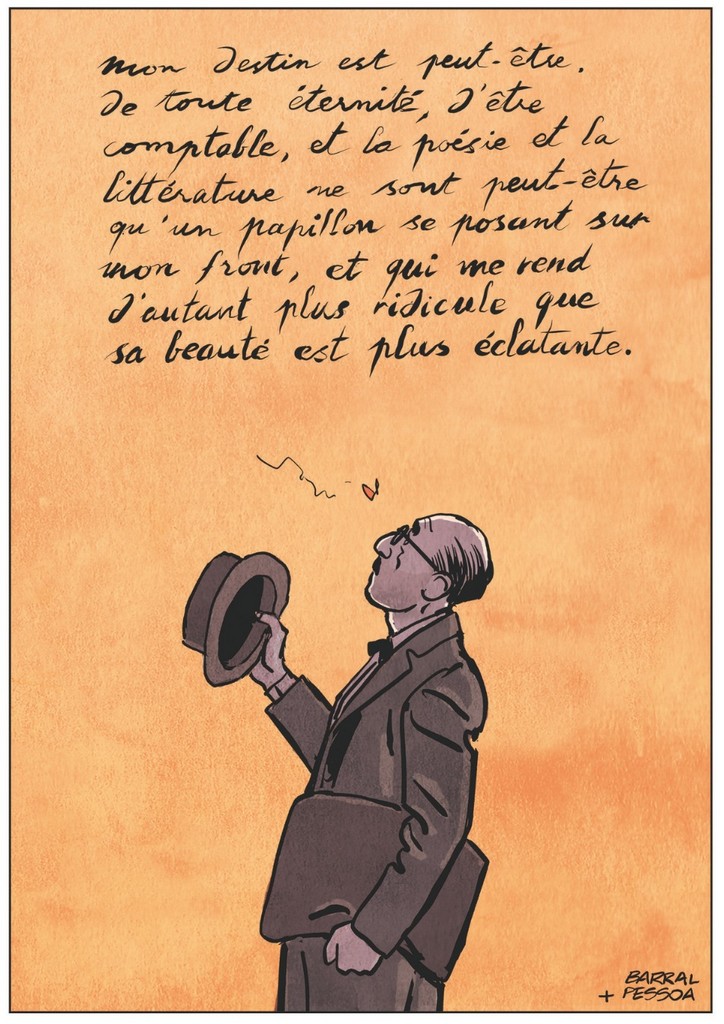 mon destin est peut-être.
De toute éternité, d'être
comptable, et la poésie et la
littérature ne sont peut-être
qu'un papillon se posant sur
mon front, et qui me rend
d'autant plus ridicule que
sa beauté est plus éclatante.
BARRAL
+ PESSOA